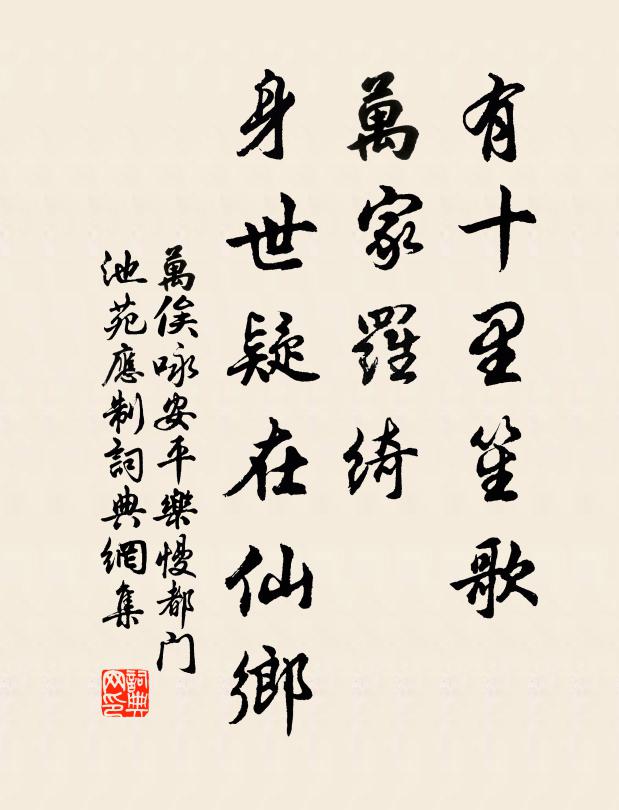 有十里笙歌
萬家羅綺
身世疑在仙鄉
萬俟咏安平樂慢都门
池苑應制詞典網集
詞典网印